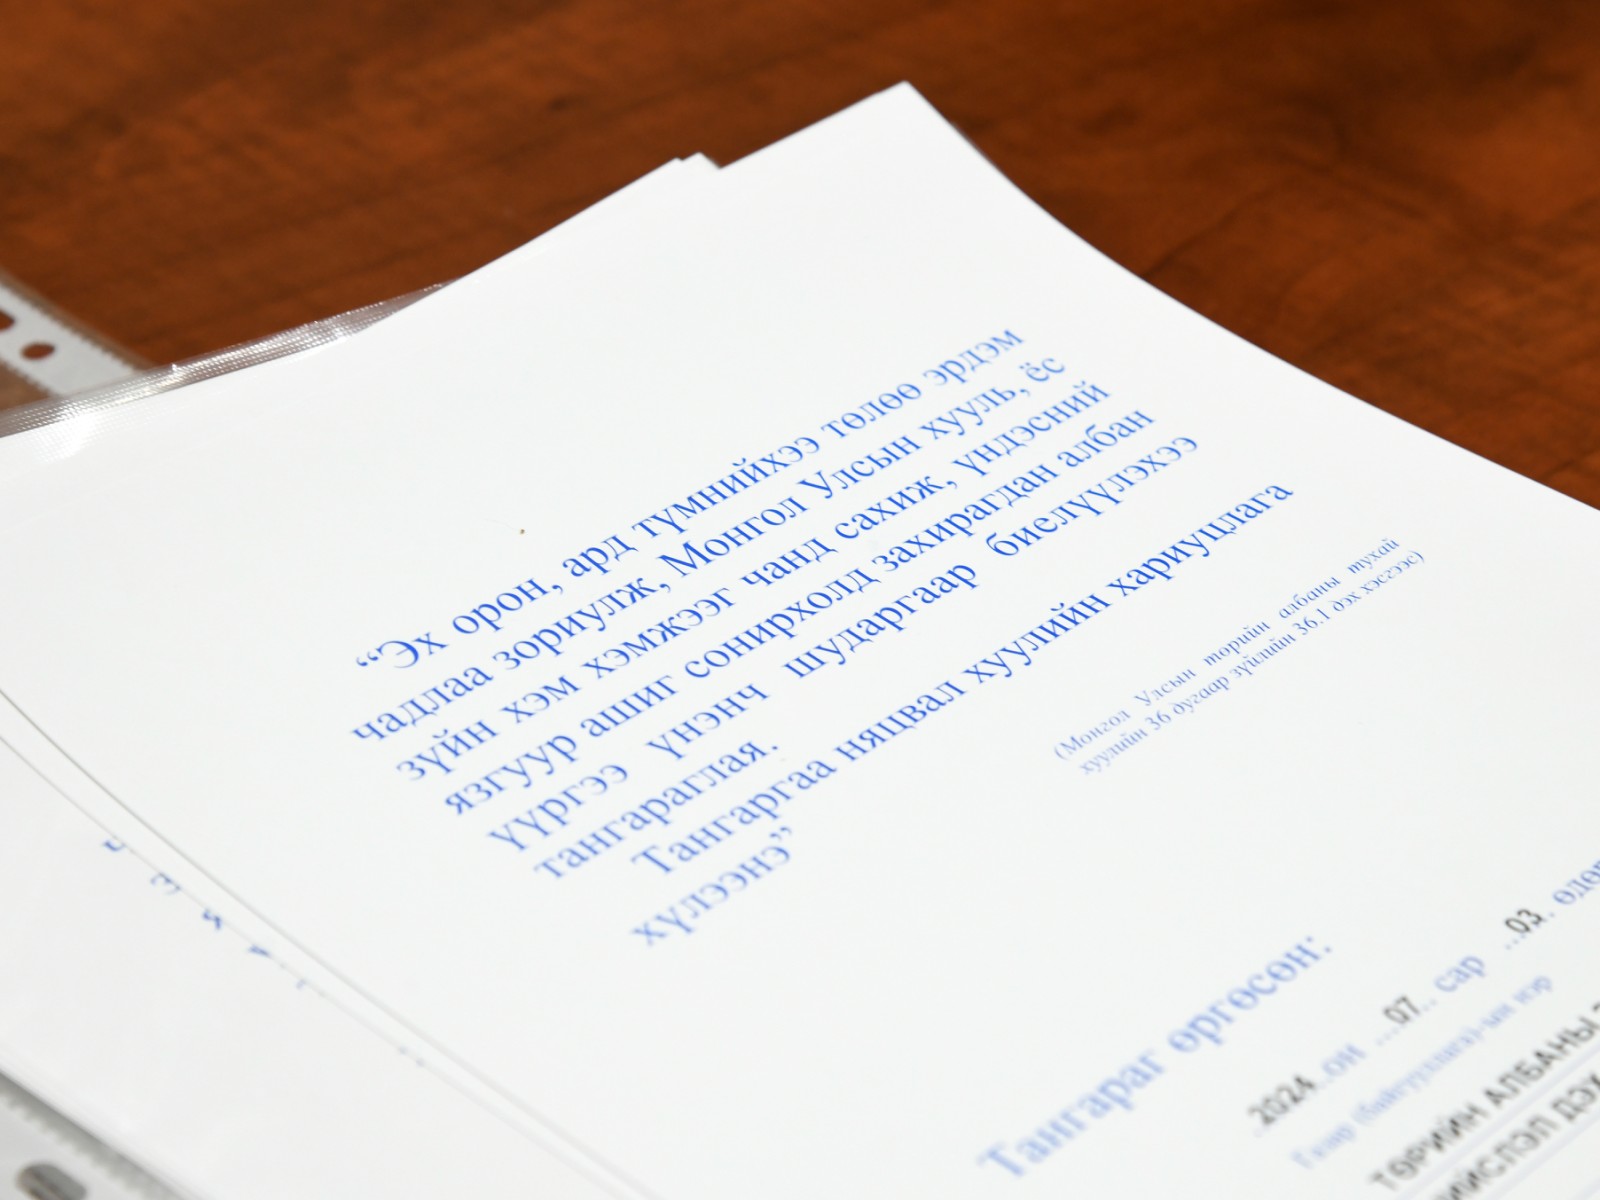 “Эх орон, ард түмнийхээ төлөө эрдэм
чадлаа зориулж, Монгол Улсын хууль, ёс
зүйн хэм хэмжээг чанд сахиж, үндэсний
язгуур ашиг сонирхолд захирагдан албан
үүргээ үнэнч шударгаар биелүүлэхээ
тангараглая.
Тангаргаа няцвал хуулийн хариуцлага
хүлээнэ”
(Монгол Улсын төрийн албаны тухай
хуулийн 36 дугаар зүйлийн 36.1 дэх хэсгээс)
Тангараг өргөсөн:
2024 он 07 сар 03
Газар (байгууллага)-ын нэр
ТӨРИЙН АЛБАНЫ
ДЭХ